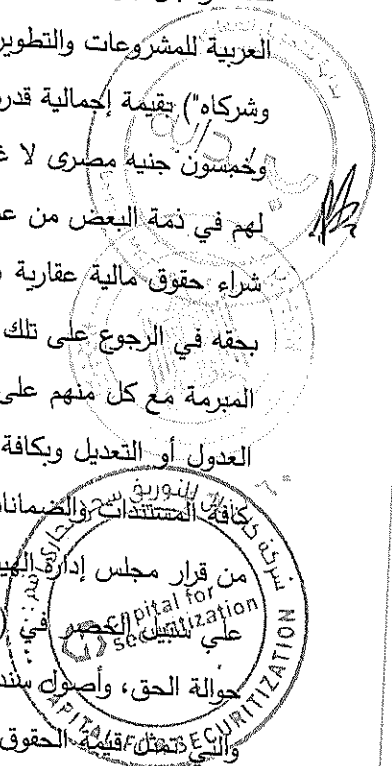 العربية للمشروعات والتطوير
وشركاه") بقيمة إجمالية قدر
وخمسون جنيه مصرى لا غ
لهم في ذمة البعض من ع
شراء حقوق مالية عقارية
بحقه في الرجوع على تلك
المبرمة مع كل منهم على
العدول أو التعديل وبكافة
كافة المستندات والضمانات
من قرار مجلس إدارة الهي
على سبيل الحصر في (
حوالة الحق، وأصول سند
والتي تمثل قيمة الحقوق
شركة كابيتال للتوريق
capital for
securitization
CAPITAL FOR SECURITIZATION